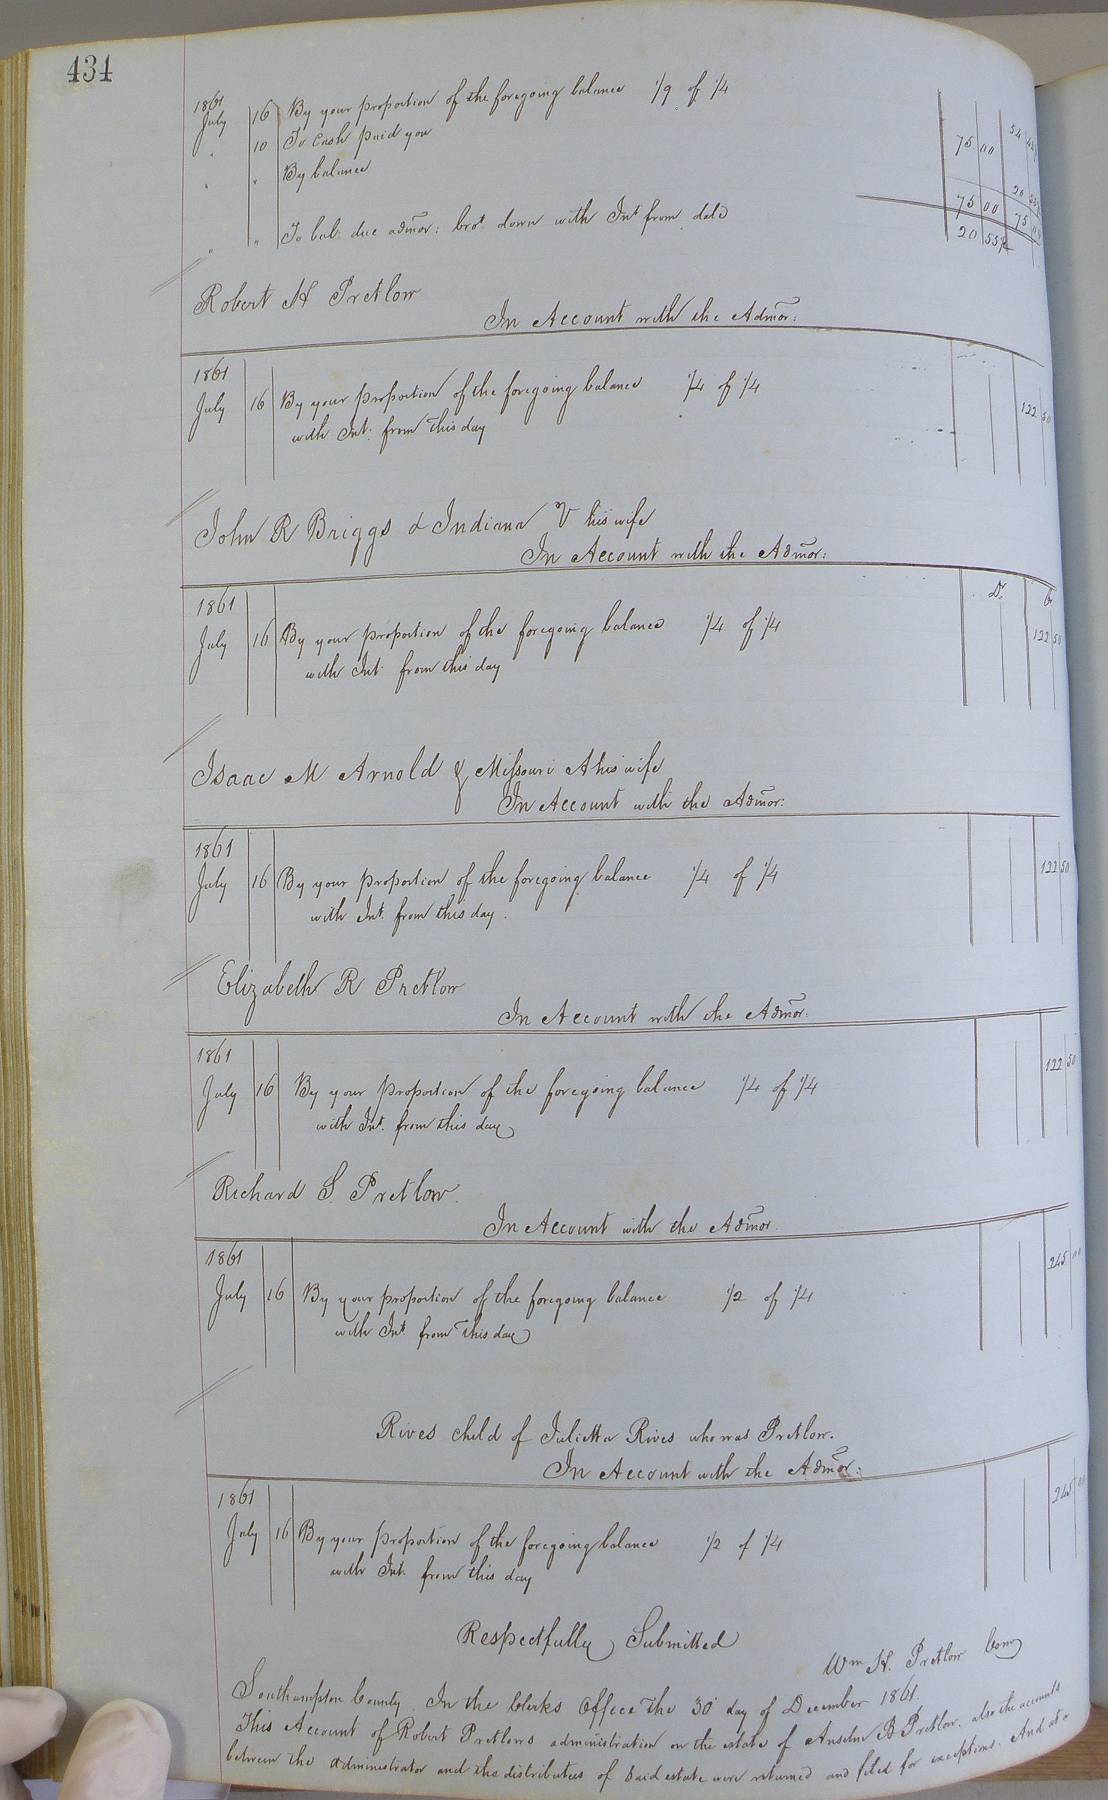 434
1861
July 16 By your proportion of the foregoing balance 1/9 of 1/4 54
" 10 To Cash paid you 75 00
" " By balance 20
75 00 75 00
" " To bal: due admor: brot down with Int from date 20 55
Robert H Pretlow
In Account with the Admor:
1861
July 16 By your proportion of the foregoing balance 1/4 of 1/4 122 50
with Int: from this day
John R Briggs & Indiana V his wife
In Account with the Admor:
1861 Dr Cr
July 16 By your proportion of the foregoing balance 1/4 of 1/4 122 50
with Int. from this day
Isaac M Arnold & Missouri A his wife
In Account with the Admor:
1861
July 16 By your proportion of the foregoing balance 1/4 of 1/4 122 50
with Int. from this day.
Elizabeth R Pretlow
In Account with the Admor:
1861
July 16 By your proportion of the foregoing balance 1/4 of 1/4 122 50
with Int. from this day
Richard S. Pretlow.
In Account with the Admor.
1861
July 16 By your proportion of the foregoing balance 1/2 of 1/4 245 00
with Int from this day
Rives child of Julietta Rives who was Pretlow.
In Account with the Admor:
1861
July 16 By your proportion of the foregoing balance 1/2 of 1/4 245 00
with Int. from this day
Respectfully Submitted
Wm H. Pretlow Com
Southampton County. In the Clerks Office the 30 day of December 1861.
This Account of Robert Pretlows administration on the estate of Anselm B Pretlow. also the accounts
between the administrator and the distributees of said estate were returned and filed for exceptions. And at a